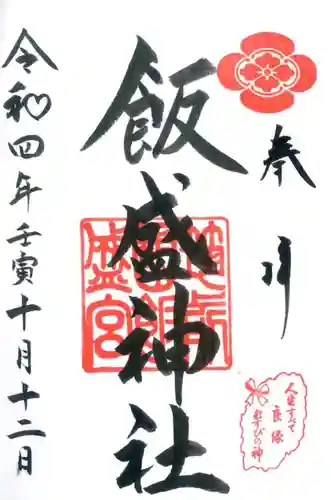 奉拝
飯盛神社
令和四年壬寅十月十二日
人生すべて
良縁
むすびの神